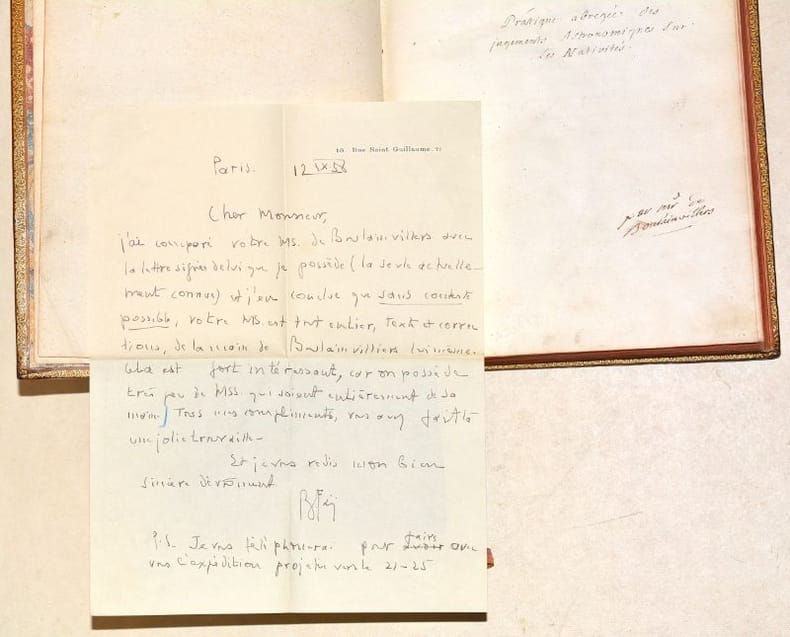 Pratique abregée des
jugements Astronomiques sur
les Nativités.
par mr. de
Boulainvillers
Rue Saint Guillaume. 7e
Paris. 12 IX.58
Cher Monsieur,
j'ai comparé votre MS. de Boulainvillers avec
la lettre signée de lui que je possède (la seule actuelle-
ment connue) et j'en conclue que sans conteste
possible, votre MS. est tout entier, texte et correc
tions, de la main de Boulainvilliers lui même.
Cela est fort intéressant, car on possède
très peu de MSS. qui soient entièrement de sa
main) Tous mes compliments, vous avez fait là
une jolie trouvaille.
Et je vous redis mon bien
sincère dévouement
BFaÿ
P.S. Je vous téléphonerai pour faire avec
vous l'expédition projetée vers le 21-25